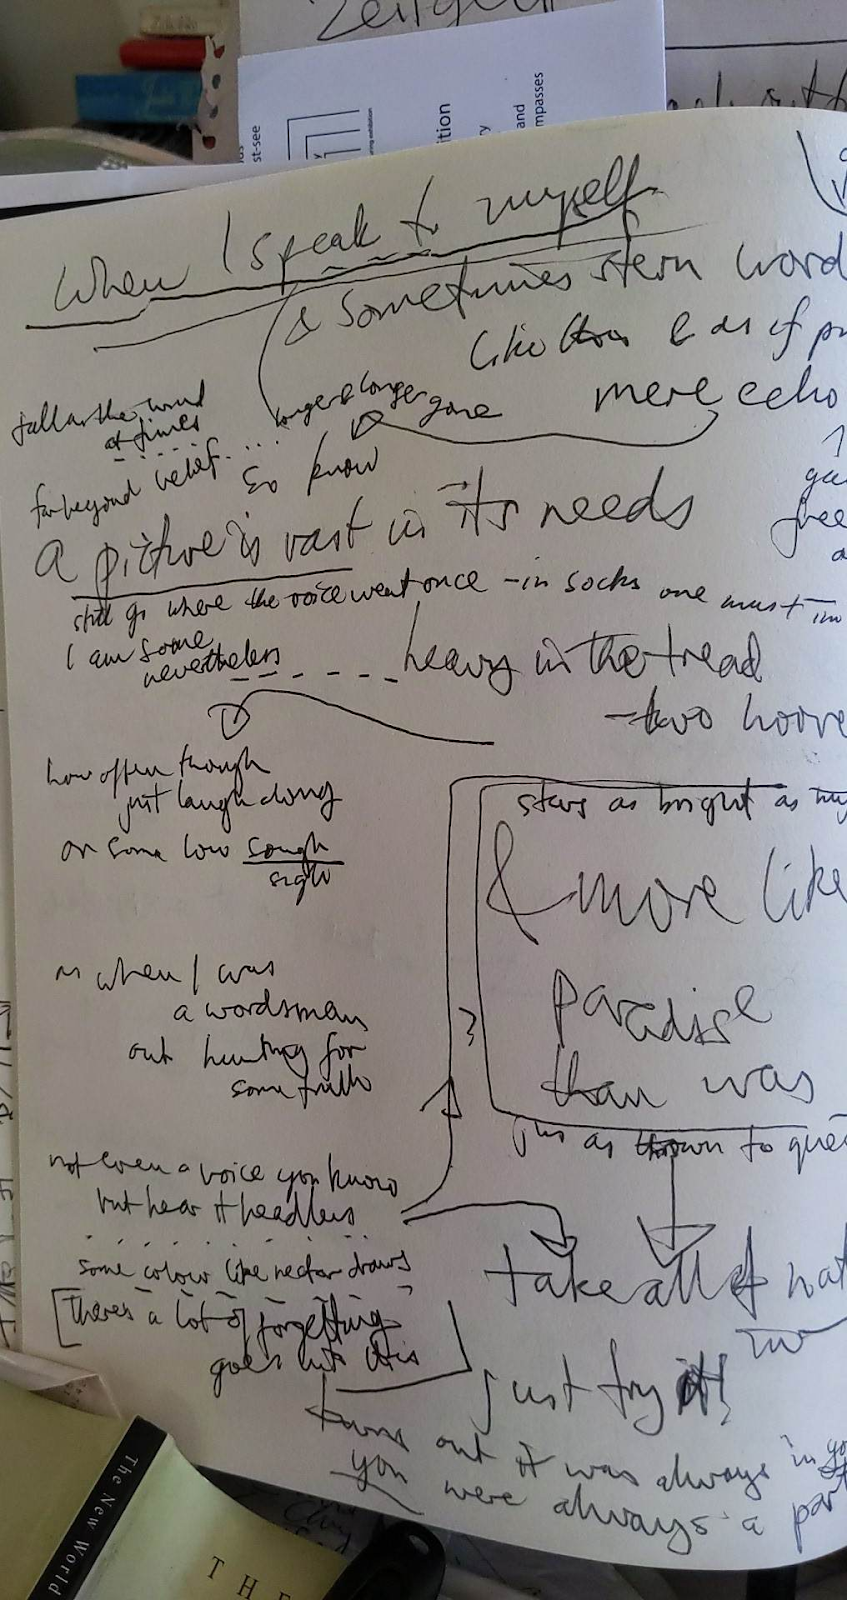 Zeitgeist
st-see
ition
ry
and
mpasses
When I speak to myself
& sometimes stern word
like & as if
mere echo
fall as the word
at times
longer & longer gone
far beyond belief....
so know
a picture is vast in its needs
still go where the voice went once - in socks one must im
I am some
nevertheless
heavy in the tread
- two hoove
how often though
just laugh along
on some low sough
sigh
stars as bright as my
& more like
paradise
than was
as when I was
a wordsman
out hunting for
some truth
?
as thrown to que
not even a voice you know
but hear it heedless
some colour like nectar draws
[there's a lot of forgetting
goes into this
take all of nat
just try it!
turns out it was always in yo
you were always a part
The New World
THE